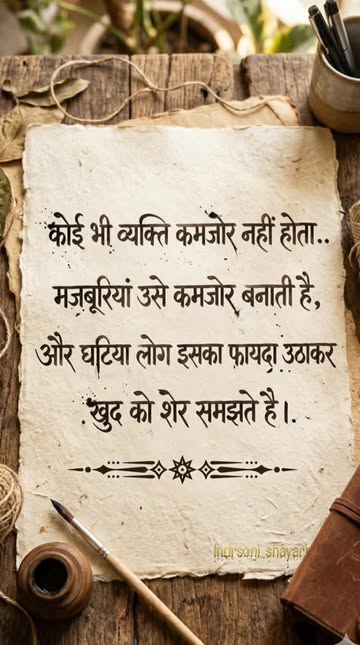 कोई भी व्यक्ति कमजोर नहीं होता..
मजबूरियां उसे कमजोर बनाती है,
और घटिया लोग इसका फायदा उठाकर
खुद को शेर समझते है।
Indrsoni_shayari